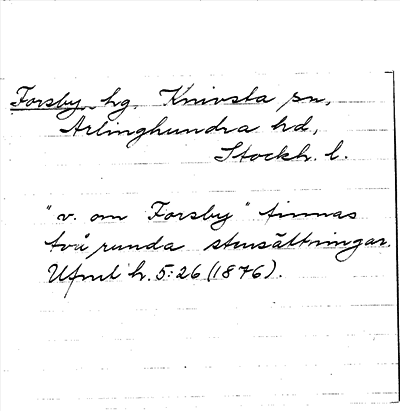 Forsby, hg, Knivsta sn,
Ärlinghundra hd,
Stockh. l.
"v. om Forsby" finnas
två runda stensättningar.
Ufmt h. 5:26 (1876).